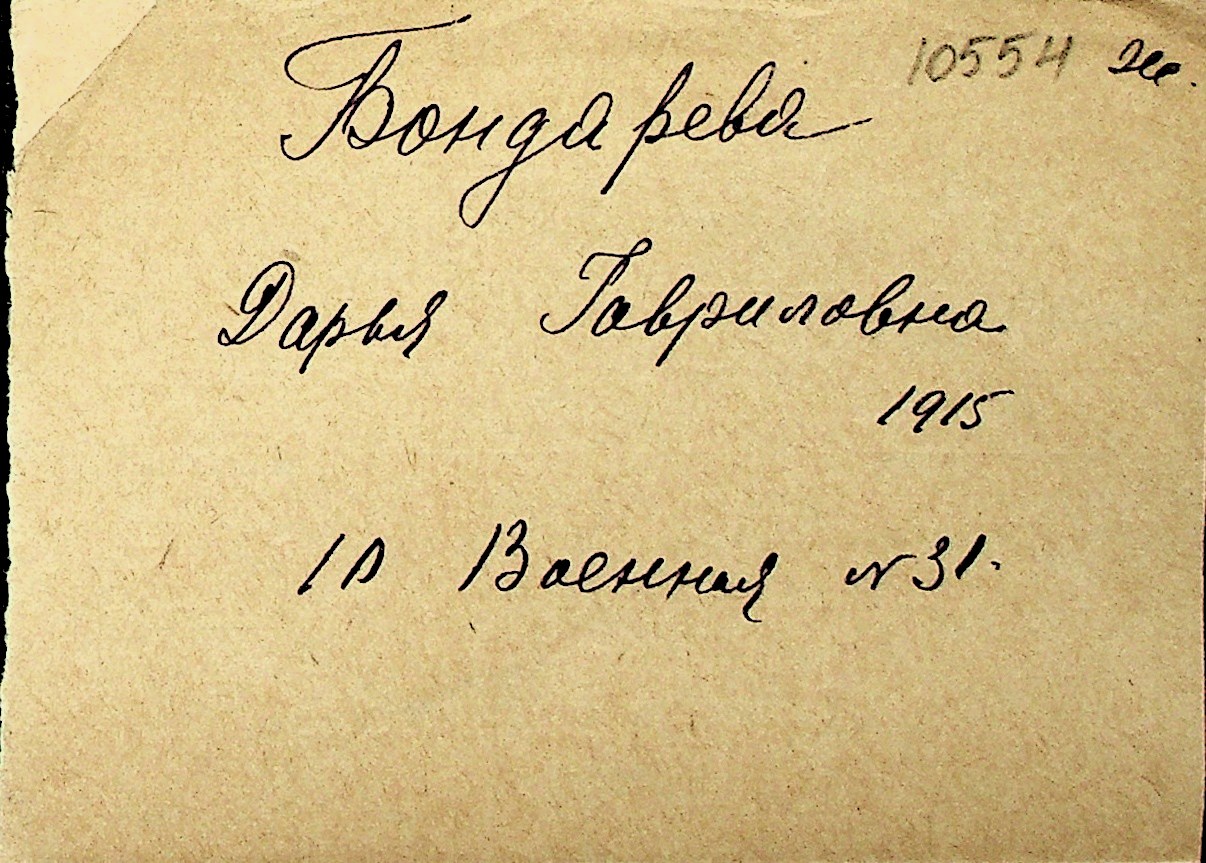 10554 ж.
Бондарева
Дарья Гавриловна
1915
10 Военная №31.